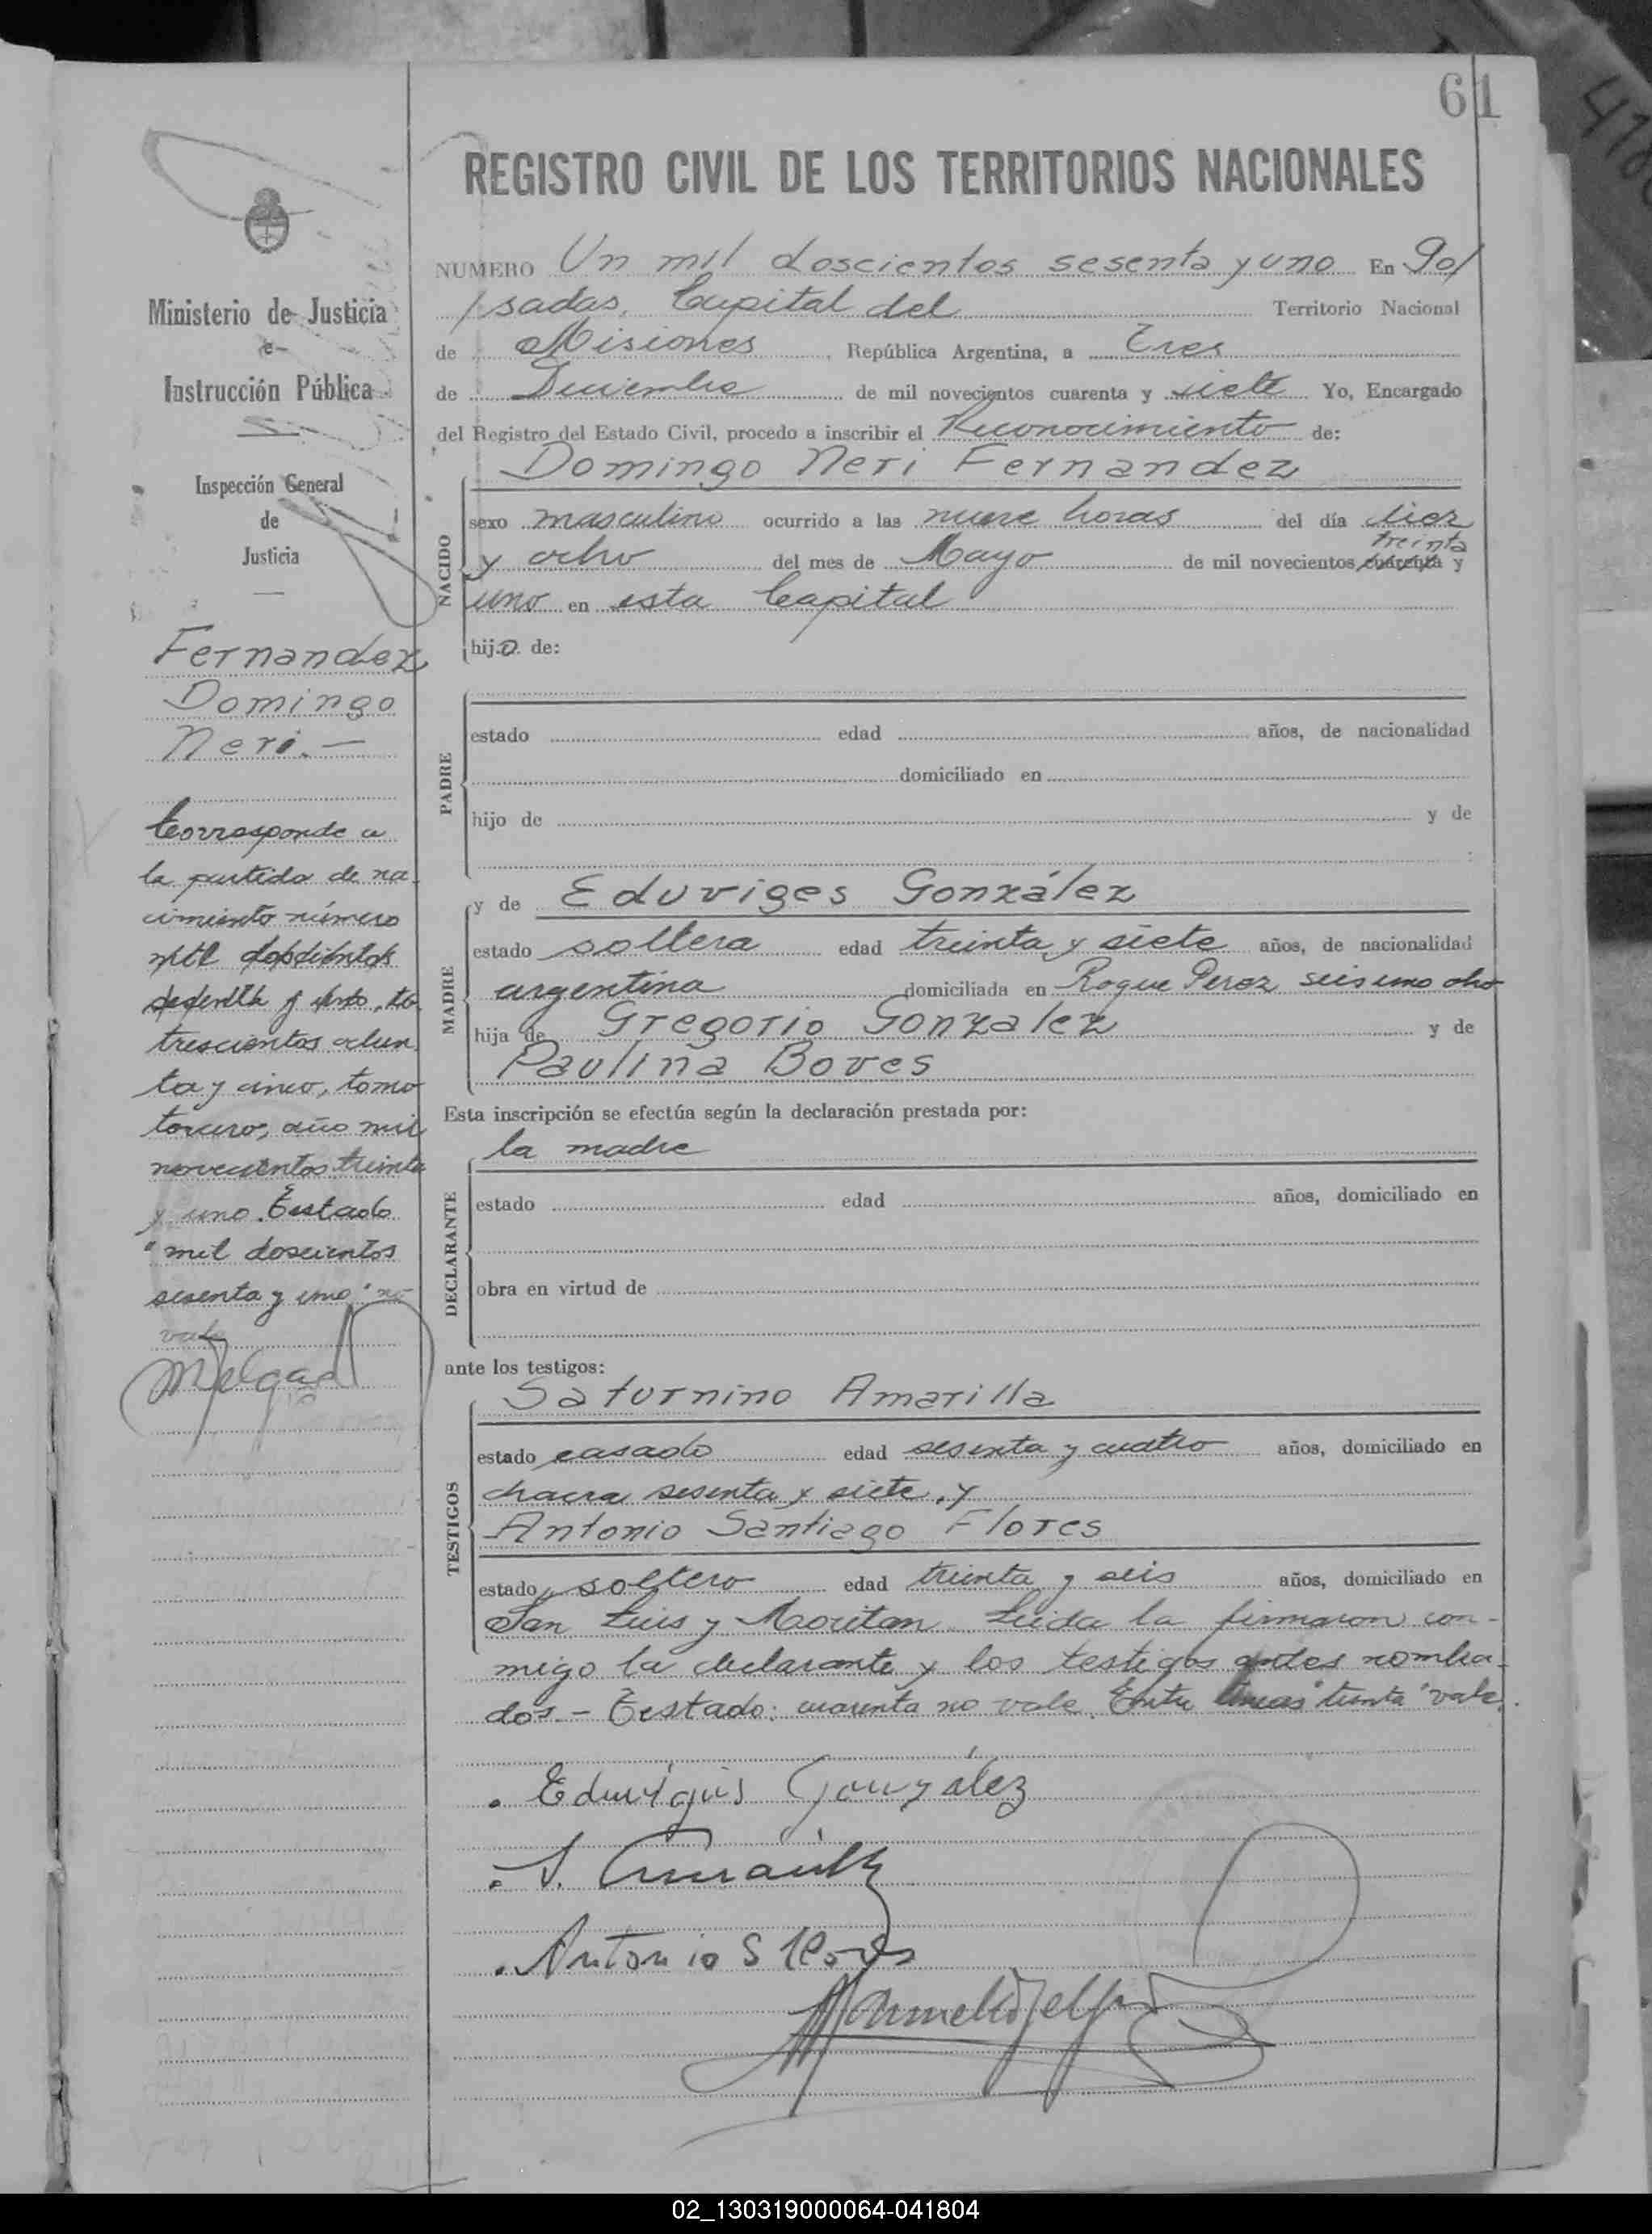 61
REGISTRO CIVIL DE LOS TERRITORIOS NACIONALES
Ministerio de Justicia
e
Instrucción Pública
Inspección General
de
Justicia
Fernandez
Domingo
Neri.—
Corresponde a
la partida de na-
cimiento número
mil doscientos
sesenta y uno,
trescientos ochen
ta y cinco, tomo
tercero, año mil
novecientos treinta
y uno. Testado
"mil doscientos
sesenta y uno" no
vale
NUMERO Un mil doscientos sesenta y uno En Po/
/sadas, Capital del Territorio Nacional
de Misiones, República Argentina, a Tres
de Diciembre de mil novecientos cuarenta y siete Yo, Encargado
del Registro del Estado Civil, procedo a inscribir el Reconocimiento de:
Domingo Neri Fernandez
NACIDO
sexo masculino ocurrido a las nueve horas del día diez
treinta
y ocho del mes de Mayo de mil novecientos cuarenta y
uno en esta Capital
hijo de:
PADRE
estado edad años, de nacionalidad
domiciliado en
hijo de y de
MADRE
y de Eduviges González
estado soltera edad treinta y siete años, de nacionalidad
argentina domiciliada en Roque Perez seis uno ocho
hija de Gregorio Gonzalez y de
Paulina Boves
Esta inscripción se efectúa según la declaración prestada por:
la madre
DECLARANTE
estado edad años, domiciliado en
obra en virtud de
ante los testigos:
TESTIGOS
Saturnino Amarilla
estado casado edad sesenta y cuatro años, domiciliado en
chacra sesenta y siete, y
Antonio Santiago Flores
estado soltero edad treinta y seis años, domiciliado en
San Luis y Moritan Leida la firmaron con-
migo la declarante y los testigos antes nombra-
dos.- Testado: cuarenta no vale. Entre lineas "treinta" vale.
Eduvigis González
S. Amarilla
Antonio S Flores
02_130319000064-041804